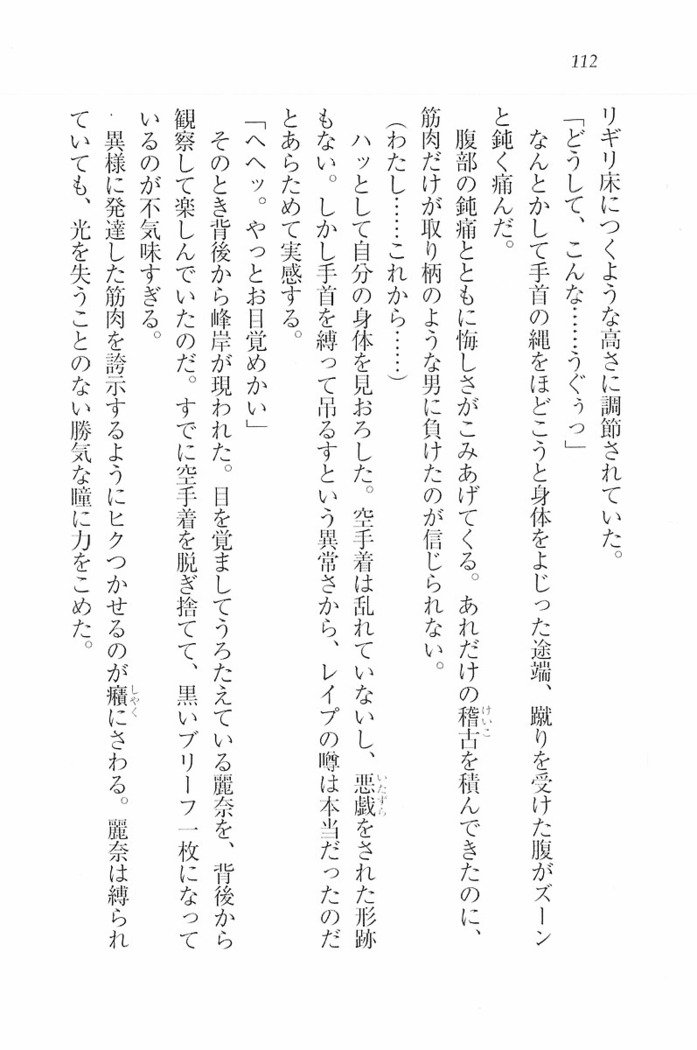 112
リギリ床につくような高さに調節されていた。
「どうして、こんな……うぐぅっ」
なんとかして手首の縄をほどこうと身体をよじった途端、蹴りを受けた腹がズーン
と鈍く痛んだ。
けいこ
腹部の鈍痛とともに悔しさがこみあげてくる。あれだけの稽古を積んできたのに、
筋肉だけが取り柄のような男に負けたのが信じられない。
(わたし……これから……)
いたずら
ハッとして自分の身体を見おろした。空手着は乱れていないし、悪戯をされた形跡
もない。しかし手首を縛って吊るすという異常さから、レイプの噂は本当だったのだ
とあらためて実感する。
「ヘヘッ。やっとお目覚めかい」
そのとき背後から峰岸が現われた。目を覚ましてうろたえている麗奈を、背後から
観察して楽しんでいたのだ。すでに空手着を脱ぎ捨てて、黒いブリーフ一枚になって
いるのが不気味すぎる。
しゃく
異様に発達した筋肉を誇示するようにヒクつかせるのが癪にさわる。麗奈は縛られ
ていても、光を失うことのない勝気な瞳に力をこめた。